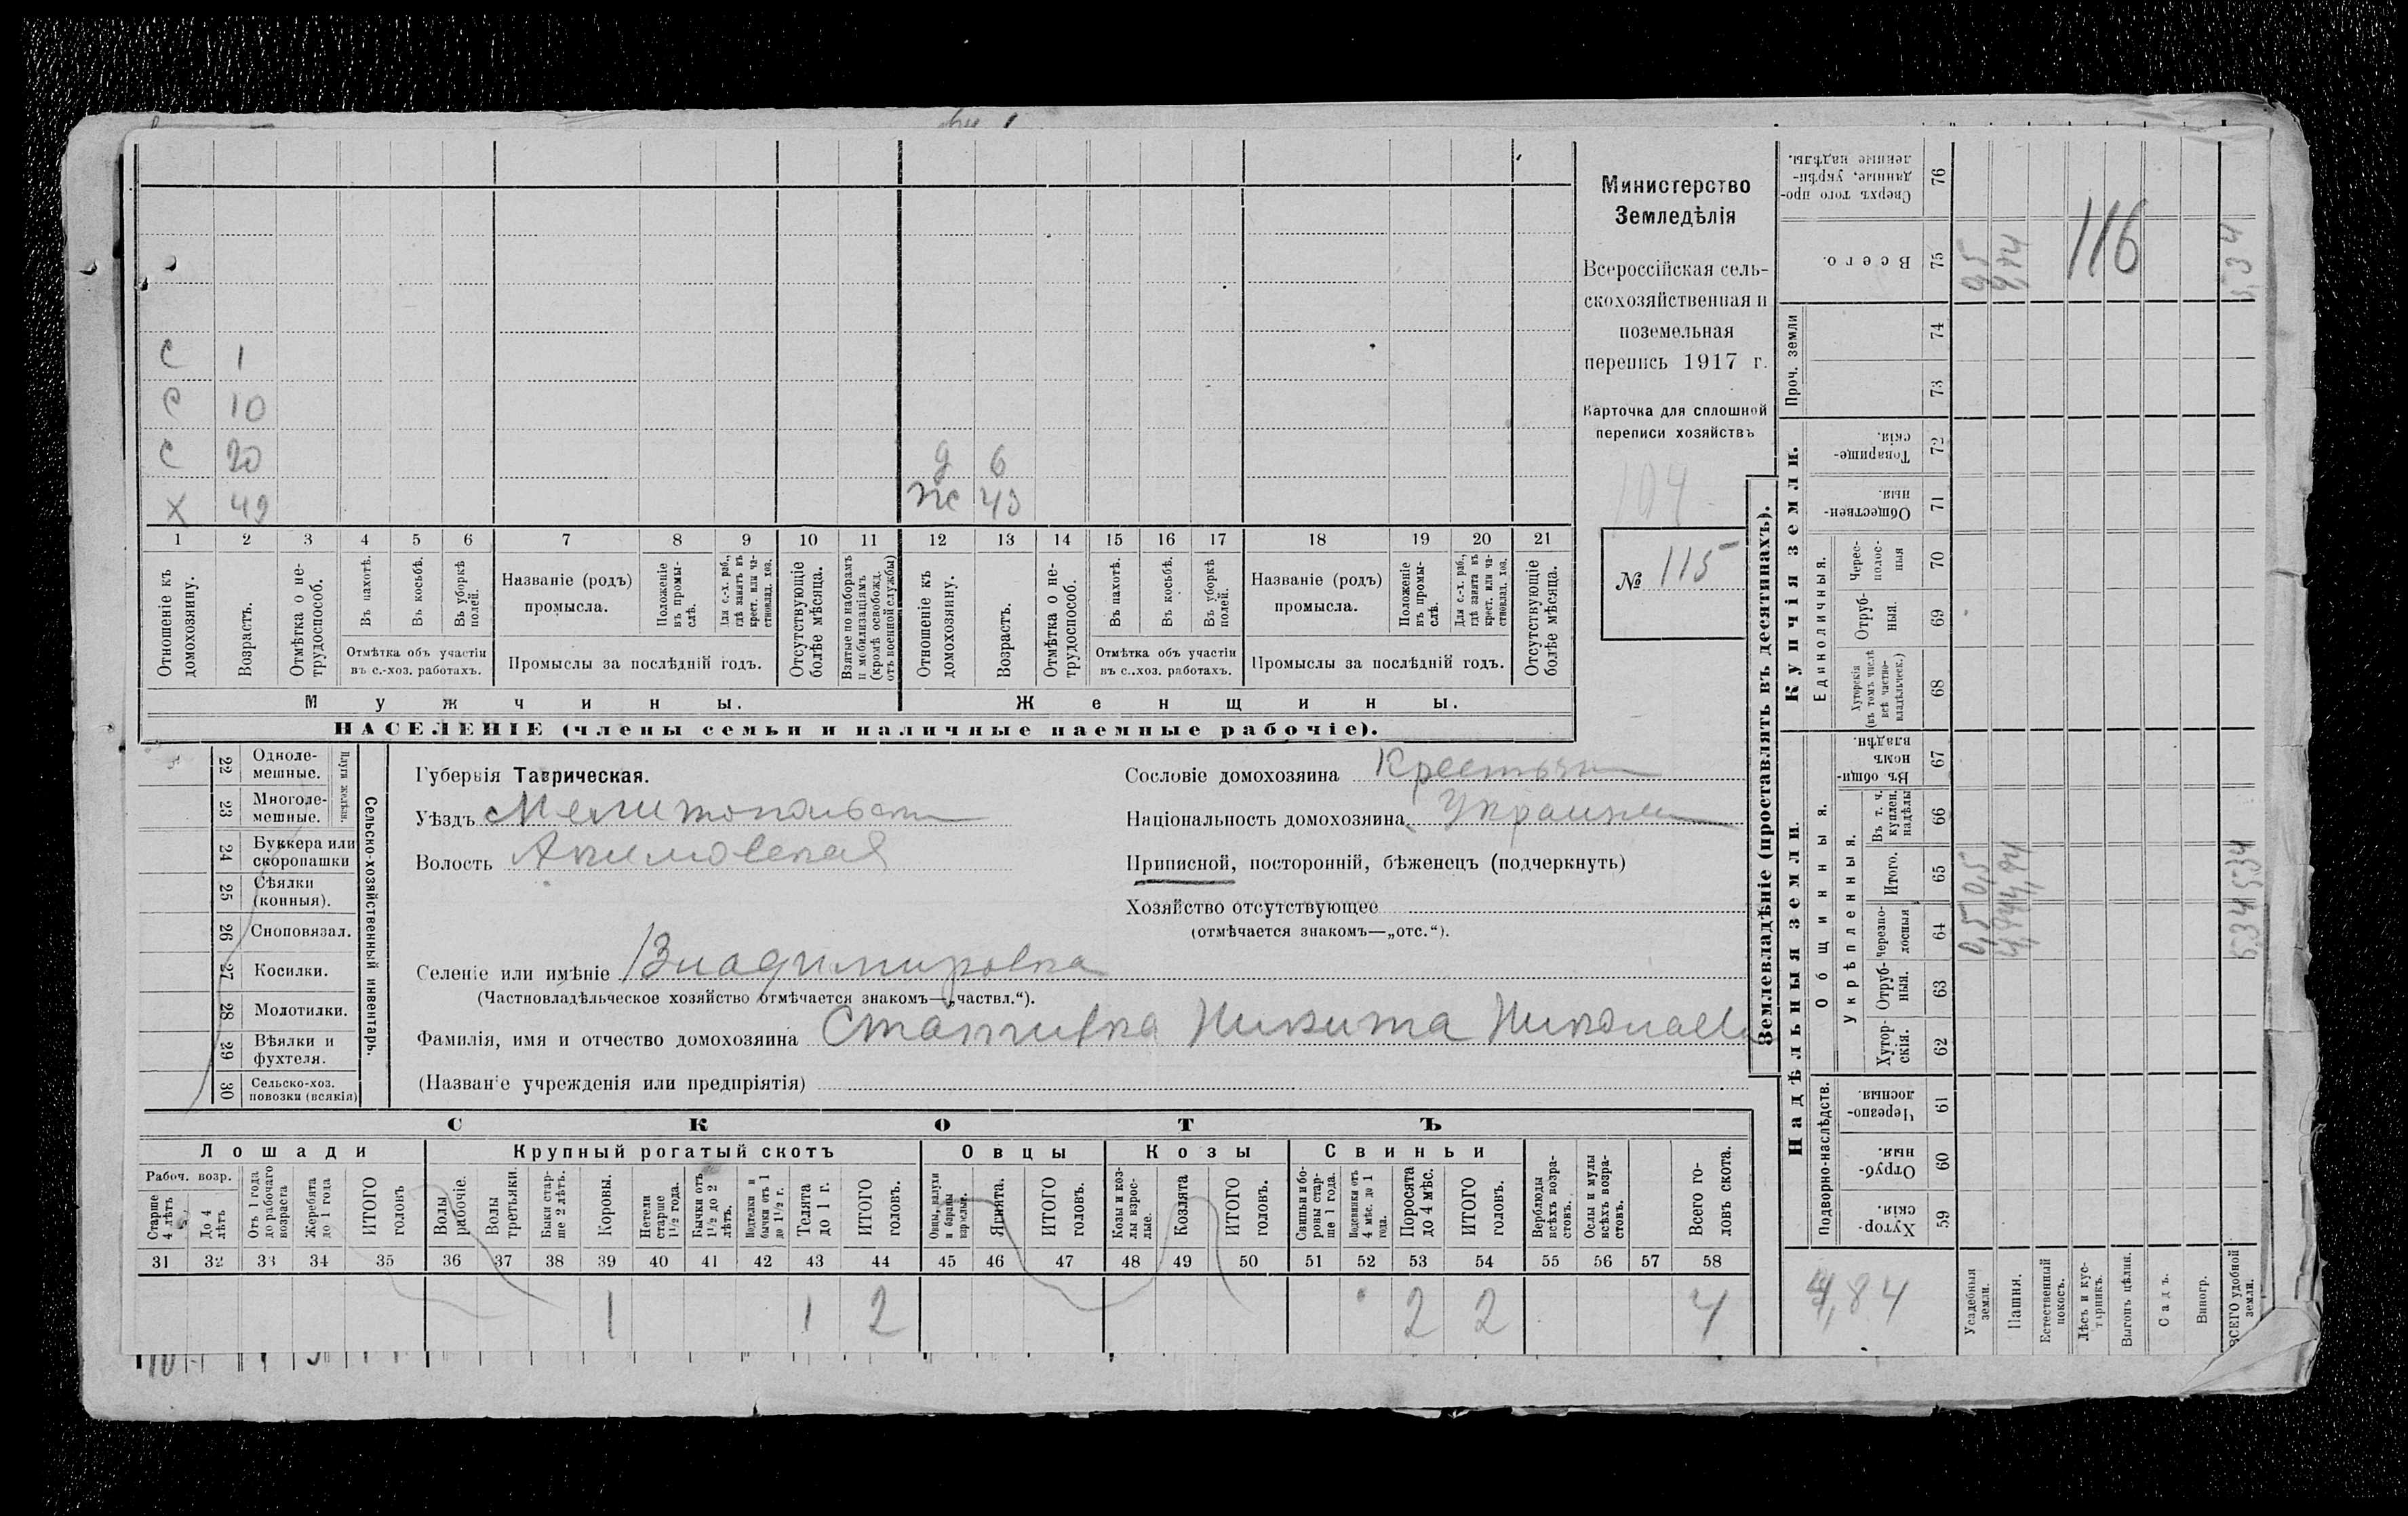 С 1
С 10
С 20 д 6
Х 49 ж 43
1 2 3 4 5 6 7 8 9 10 11 12 13 14 15 16 17 18 19 20 21
Отношеніе къ домохозяину.
Возрастъ.
Отмѣтка о не-трудоспособ.
Въ пахотѣ.
Въ косьбѣ.
Въ уборкѣ полей.
Отмѣтка объ участіи
въ с.-хоз. работахъ.
Названіе (родъ)
промысла.
Положеніе въ промы-слѣ.
Для с.-х. раб., гдѣ занятъ въ крест. или ча-стновлад. хоз.
Промыслы за послѣдній годъ.
Отсутствующіе болѣе мѣсяца.
Взятые по наборамъ и мобилизаціямъ (кромѣ освобожд. отъ военной службы)
Отношеніе къ домохозяину.
Возрастъ.
Отмѣтка о не-трудоспособ.
Въ пахотѣ.
Въ косьбѣ.
Въ уборкѣ полей.
Отмѣтка объ участіи
въ с..хоз. работахъ.
Названіе (родъ)
промысла.
Положеніе въ промы-слѣ.
Для с.-х. раб., гдѣ занята въ крест. или ча-стновлад. хоз.
Промыслы за послѣдній годъ.
Отсутствующіе болѣе мѣсяца.
Мужчины. Женщины.
НАСЕЛЕНІЕ (члены семьи и наличные наемные рабочіе).
Министерство
Земледѣлія
Всероссійская сель-
скохозяйственная и
поземельная
перепись 1917 г.
Карточка для сплошной
переписи хозяйствъ
104
№ 115
Сельско-хозяйственный инвентарь.
Плуги желѣзн.
22 Одноле-
мешные.
23 Многоле-
мешные.
24 Буккера или
скоропашки
25 Сѣялки
(конныя).
26 Сноповязал.
27 Косилки.
28 Молотилки.
29 Вѣялки и
фухтеля.
30 Сельско-хоз.
повозки (всякія)
Губернія Таврическая.
Уѣздъ Мелитопольск
Волость Акимовская
Сословіе домохозяина Крестьян
Національность домохозяина Украин
Приписной, посторонній, бѣженецъ (подчеркнуть)
Хозяйство отсутствующее
(отмѣчается знакомъ—„отс.“).
Селеніе или имѣніе Владимировка
(Частновладѣльческое хозяйство отмѣчается знакомъ—„частвл.“).
Фамилія, имя и отчество домохозяина Никита Николаев
(Названіе учрежденія или предпріятія)
СКОТЪ
Лошади Крупный рогатый скотъ Овцы Козы Свиньи
Рабоч. возр.
Старше 4 лѣтъ
До 4 лѣтъ
Отъ 1 года до рабочаго возраста
Жеребята до 1 года
ИТОГО головъ
Волы рабочіе.
Волы третьяки.
Быки стар-ше 2 лѣтъ.
Коровы.
Нетели старше 1½ года.
Бычки отъ 1½ до 2 лѣтъ.
Подтелки и бычки отъ 1 до 1½ г.
Телята до 1 г.
ИТОГО головъ.
Овцы, валухи и бараны взрослые.
Ягнята.
ИТОГО головъ.
Козы и коз-лы взрос-лые.
Козлята
ИТОГО головъ.
Свиньи и бо-ровы стар-ше 1 года.
Подсвинки отъ 4 мѣс. до 1 года.
Поросята до 4 мѣс.
ИТОГО головъ.
Верблюды всѣхъ возра-стовъ.
Ослы и мулы всѣхъ возра-стовъ.
Всего го-ловъ скота.
31 32 33 34 35 36 37 38 39 40 41 42 43 44 45 46 47 48 49 50 51 52 53 54 55 56 57 58
1 1 2 2 2 4
Землевладѣніе (проставлять въ десятинахъ).
Надѣльныя земли.
Купчія земли.
Проч. земли
Подворно-наслѣдств.
Общинныя.
Укрѣпленныя.
Единоличныя.
Хутор-скія. 59
Отруб-ныя. 60
Черезпо-лосныя 61
Хутор-скія. 62
Отруб-ныя. 63
Черезпо-лосныя 64
Итого. 65
Въ т. ч. куплен. надѣлы 66
Въ общин-номъ владѣн. 67
Хуторскія (въ томъ числѣ всѣ частно-владѣльческ.) 68
Отруб-ныя. 69
Черес-полос-ныя 70
Обществен-ныя. 71
Товарище-скія. 72
73
74
Всего. 75
Сверхъ того про-данные, укрѣп-ленные надѣлы. 76
Усадебныя земли. 0,5 0,5 0,5
Пашня. 4,84 4,84 4,84
Естественный покосъ.
Лѣсъ и кус-тарникъ.
Выгонъ цѣлин.
Садъ.
Виногр.
ВСЕГО удобной земли. 5,34 5,34 5,34
116
4,84